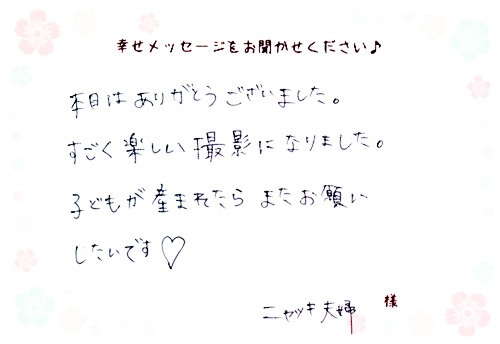 幸せメッセージをお聞かせください♪
本日はありがとうございました。
すごく楽しい撮影になりました。
子どもが産まれたら またお願い
したいです♡
ニャッキ夫婦 様